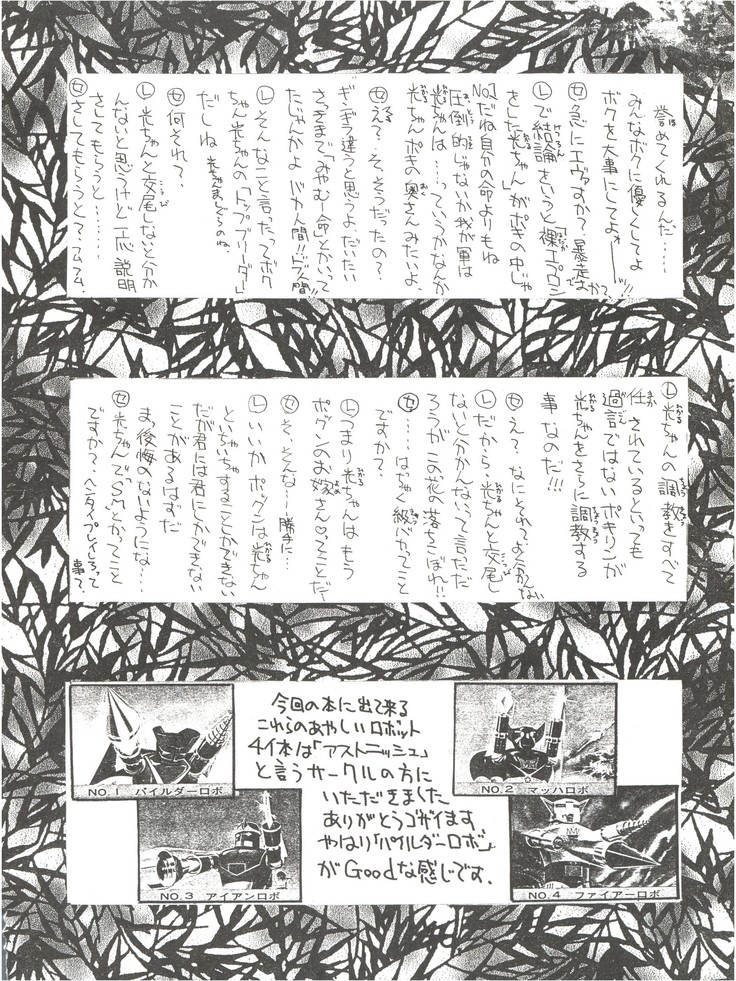 誉めてくれるんだ……
みんなボクに優しくしてよ
ボクを大事にしてよォ――!!
セ急にエヴァですか? 暴走
Lで結論をいうと裸エプロン
をした「光ちゃん」がポギの中じゃ
No.1だね自分の命よりもね
圧倒的じゃないか我が軍は
光ちゃんは……っていうかなんか
光ちゃんポキの奥さんみたいよ
セえ?そ、そうだったの?
ギンギラ違うと思うよ、だいたい
さっきまで「みゃむー命とかいって
たじゃんかよ バカ人間!!ドブ人間!!
Lそんなこと言ったってボク
ちゃん光ちゃんの「トップブリーダー」
だしね 光ちゃんまっしぐらのね。
セ何それ?
L光ちゃんと交尾しないと分か
んないと思うけど一応説明
さしてもらうと……
セさしてもらうとって、アムアム、
L光ちゃんの調教をすべて
任されているといっても
過言ではないポキリンが
光ちゃんをさらに調教する
事なのだ!!
セえ?なにそれってよく分んない
Lだから、光ちゃんと交尾し
ないと分かんないって言っただ
ろうがこの花の落ちこぼれ!!
セ……はちゃく級バカってこと
ですか?
Lつまり光ちゃんはもう
ボグンのお嫁さんってことだー
セそ、そんな…勝手に…
Lいいかボッグンは光ちゃん
といちゃいちゃすることかできない
だが君には君にしかできない
ことがあるはずだ
まっ後悔のないようにな…
セ光ちゃんで"SM"とかってこと
ですか?ヘンタイプレイしちって
事で、
今回の本に出て来る
これらのあやしいロボット
4体は「アストニッシュ」
と言うサークルの方に
いただきました
ありがとうゴザイます
やはり「バイルダーロボ」
がGoodな感じです。
NO.1 バイルダーロボ
NO.2 マッハロボ
NO.3 アイアンロボ
NO.4 ファイアーロボ